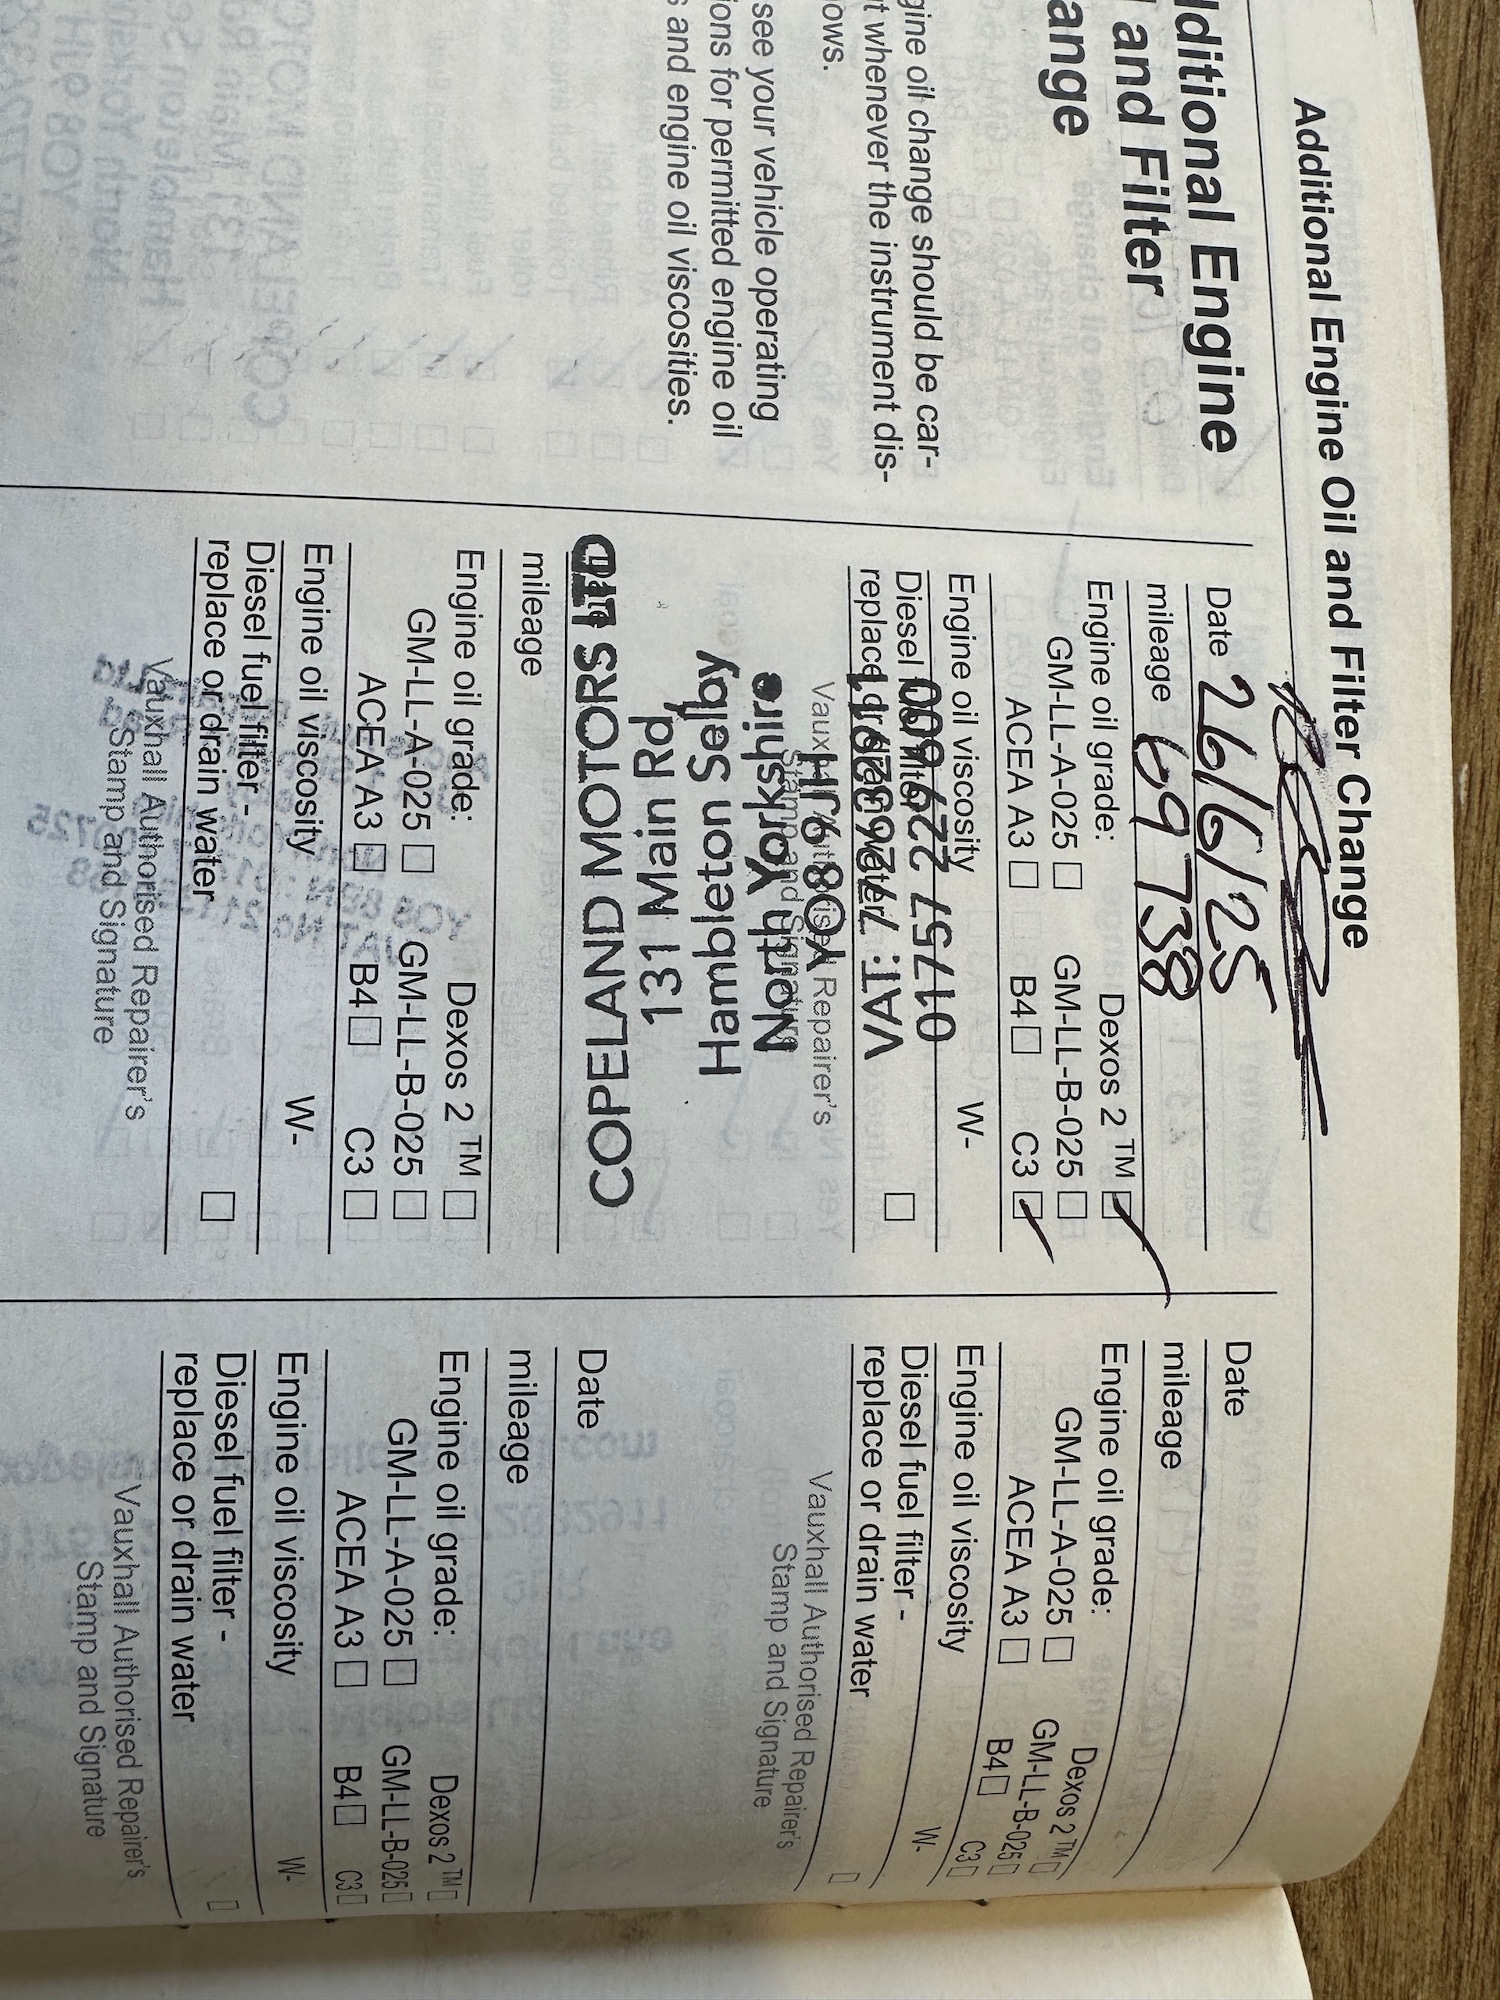 Additional Engine Oil and Filter Change
dditional Engine
and Filter
ange
gine oil change should be car-
t whenever the instrument dis-
ows.
see your vehicle operating
ions for permitted engine oil
s and engine oil viscosities.
Date 26/6/25
mileage 69738
Engine oil grade: Dexos 2 ™
GM-LL-A-025 GM-LL-B-025
ACEA A3 B4 C3
Engine oil viscosity W-
Diesel filter
replace drain water
Vauxhall Authorised Repairer's
Stamp and Signature
COPELAND MOTORS LTD
131 Main Rd
Hambleton Selby
North Yorkshire
YO8 9JH
VAT:
01757 229600
mileage
Engine oil grade: Dexos 2 ™
GM-LL-A-025 GM-LL-B-025
ACEA A3 B4 C3
Engine oil viscosity W-
Diesel fuel filter -
replace or drain water
Vauxhall Authorised Repairer's
Stamp and Signature
Date
mileage
Engine oil grade: Dexos 2 ™
GM-LL-A-025 GM-LL-B-025
ACEA A3 B4 C3
Engine oil viscosity W-
Diesel fuel filter -
replace or drain water
Vauxhall Authorised Repairer's
Stamp and Signature
Date
mileage
Engine oil grade: Dexos 2 ™
GM-LL-A-025 GM-LL-B-025
ACEA A3 B4 C3
Engine oil viscosity W-
Diesel fuel filter -
replace or drain water
Vauxhall Authorised Repairer's
Stamp and Signature